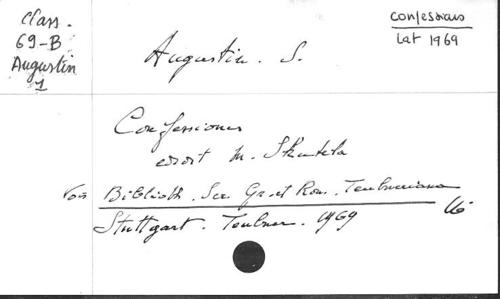 Class.
69-B
Augustin
1
Confessions
Lat 1969
Augustin. S.
Confessiones
edit M. Skutela
Voir Biblioth. Scr. Gr. et Rom. Teubneriana
Stuttgart. Teubner. 1969